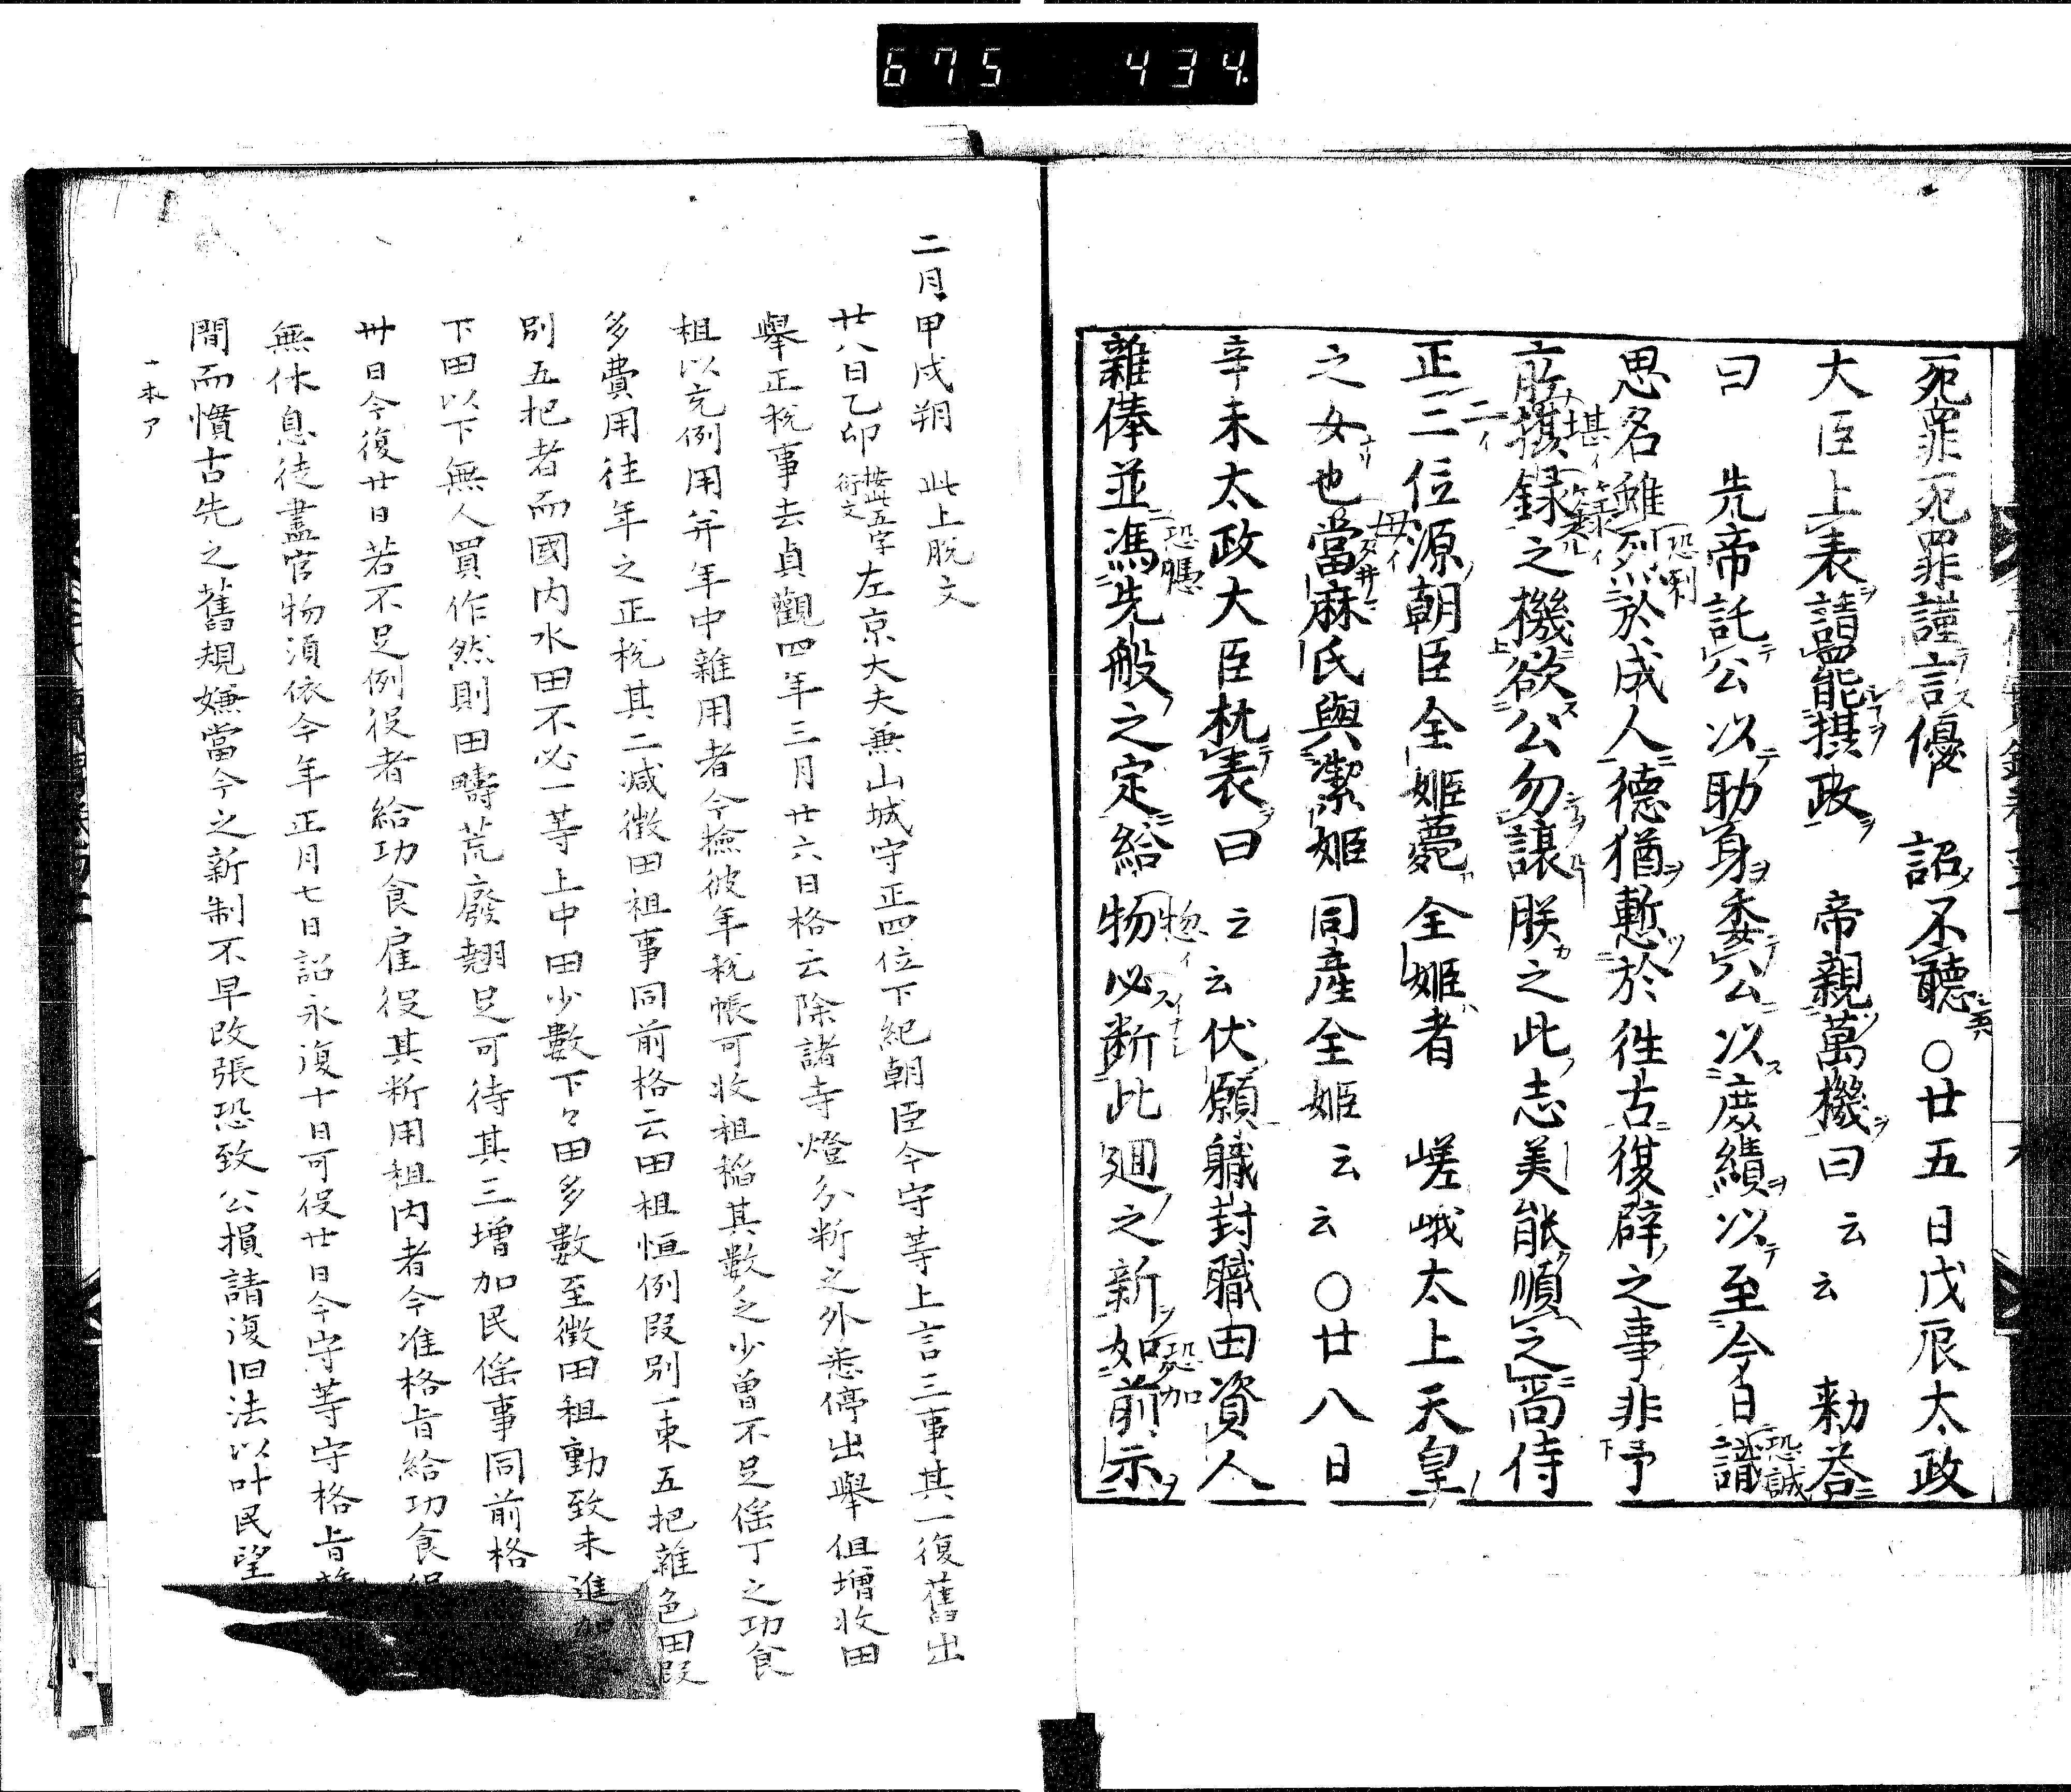 675 434.
死罪死罪謹言優 詔不聽○廿五日戊辰太政
大臣上表請罷能摂政 帝親萬機曰 云 云 勅荅
曰 先帝託公以助身委公以庶績以至今日識
恐誠
思名雖烈於成人德猶慙於徃古復辟之事非予
恐剌
所摂録之機欲公勿譲朕之此志美能順之高侍
堪イ 籙イ
正三位源朝臣全姬薨全姬者 嵯峨太上天皇
二イ
之女也當麻氏與潔姬同産全姬云云○廿八日
母イ
辛未太政大臣枕表曰云云伏願職封職田資人
雜俸並馮先般之定給物必断此廻之新如前示
恐憑 惣イ 恐加
二月甲戌朔 此上脱文
廿八日乙卯 按此五字衍文 左京大夫兼山城守正四位下紀朝臣今守等上言三事其一復舊出
舉正税事去貞觀四年三月廿六日格云除諸寺燈分断之外悉停出舉但増收田
租以充例用并年中雜用者今撿彼年税帳可收租稲其數乏少曽不足徭丁之功食
多費用徃年之正税其二减徴田租事同前格云田租恒例段別一束五把雜色田段
別五把者而國内水田不必一等上中田少數下々田多數至徴田租動致未進加
下田以下無人買作然則田疇荒廢翹足可待其三増加民徭事同前格
卅日今復廿日若不足例役者給功食雇役其断用租内者今准格旨給功食
無休息徒盡官物須依今年正月七日詔永復十日可役廿日今守等守格旨
間而慣古先之舊規嫌當今之新制不早改張恐致公損請復旧法以叶民望
一本ア